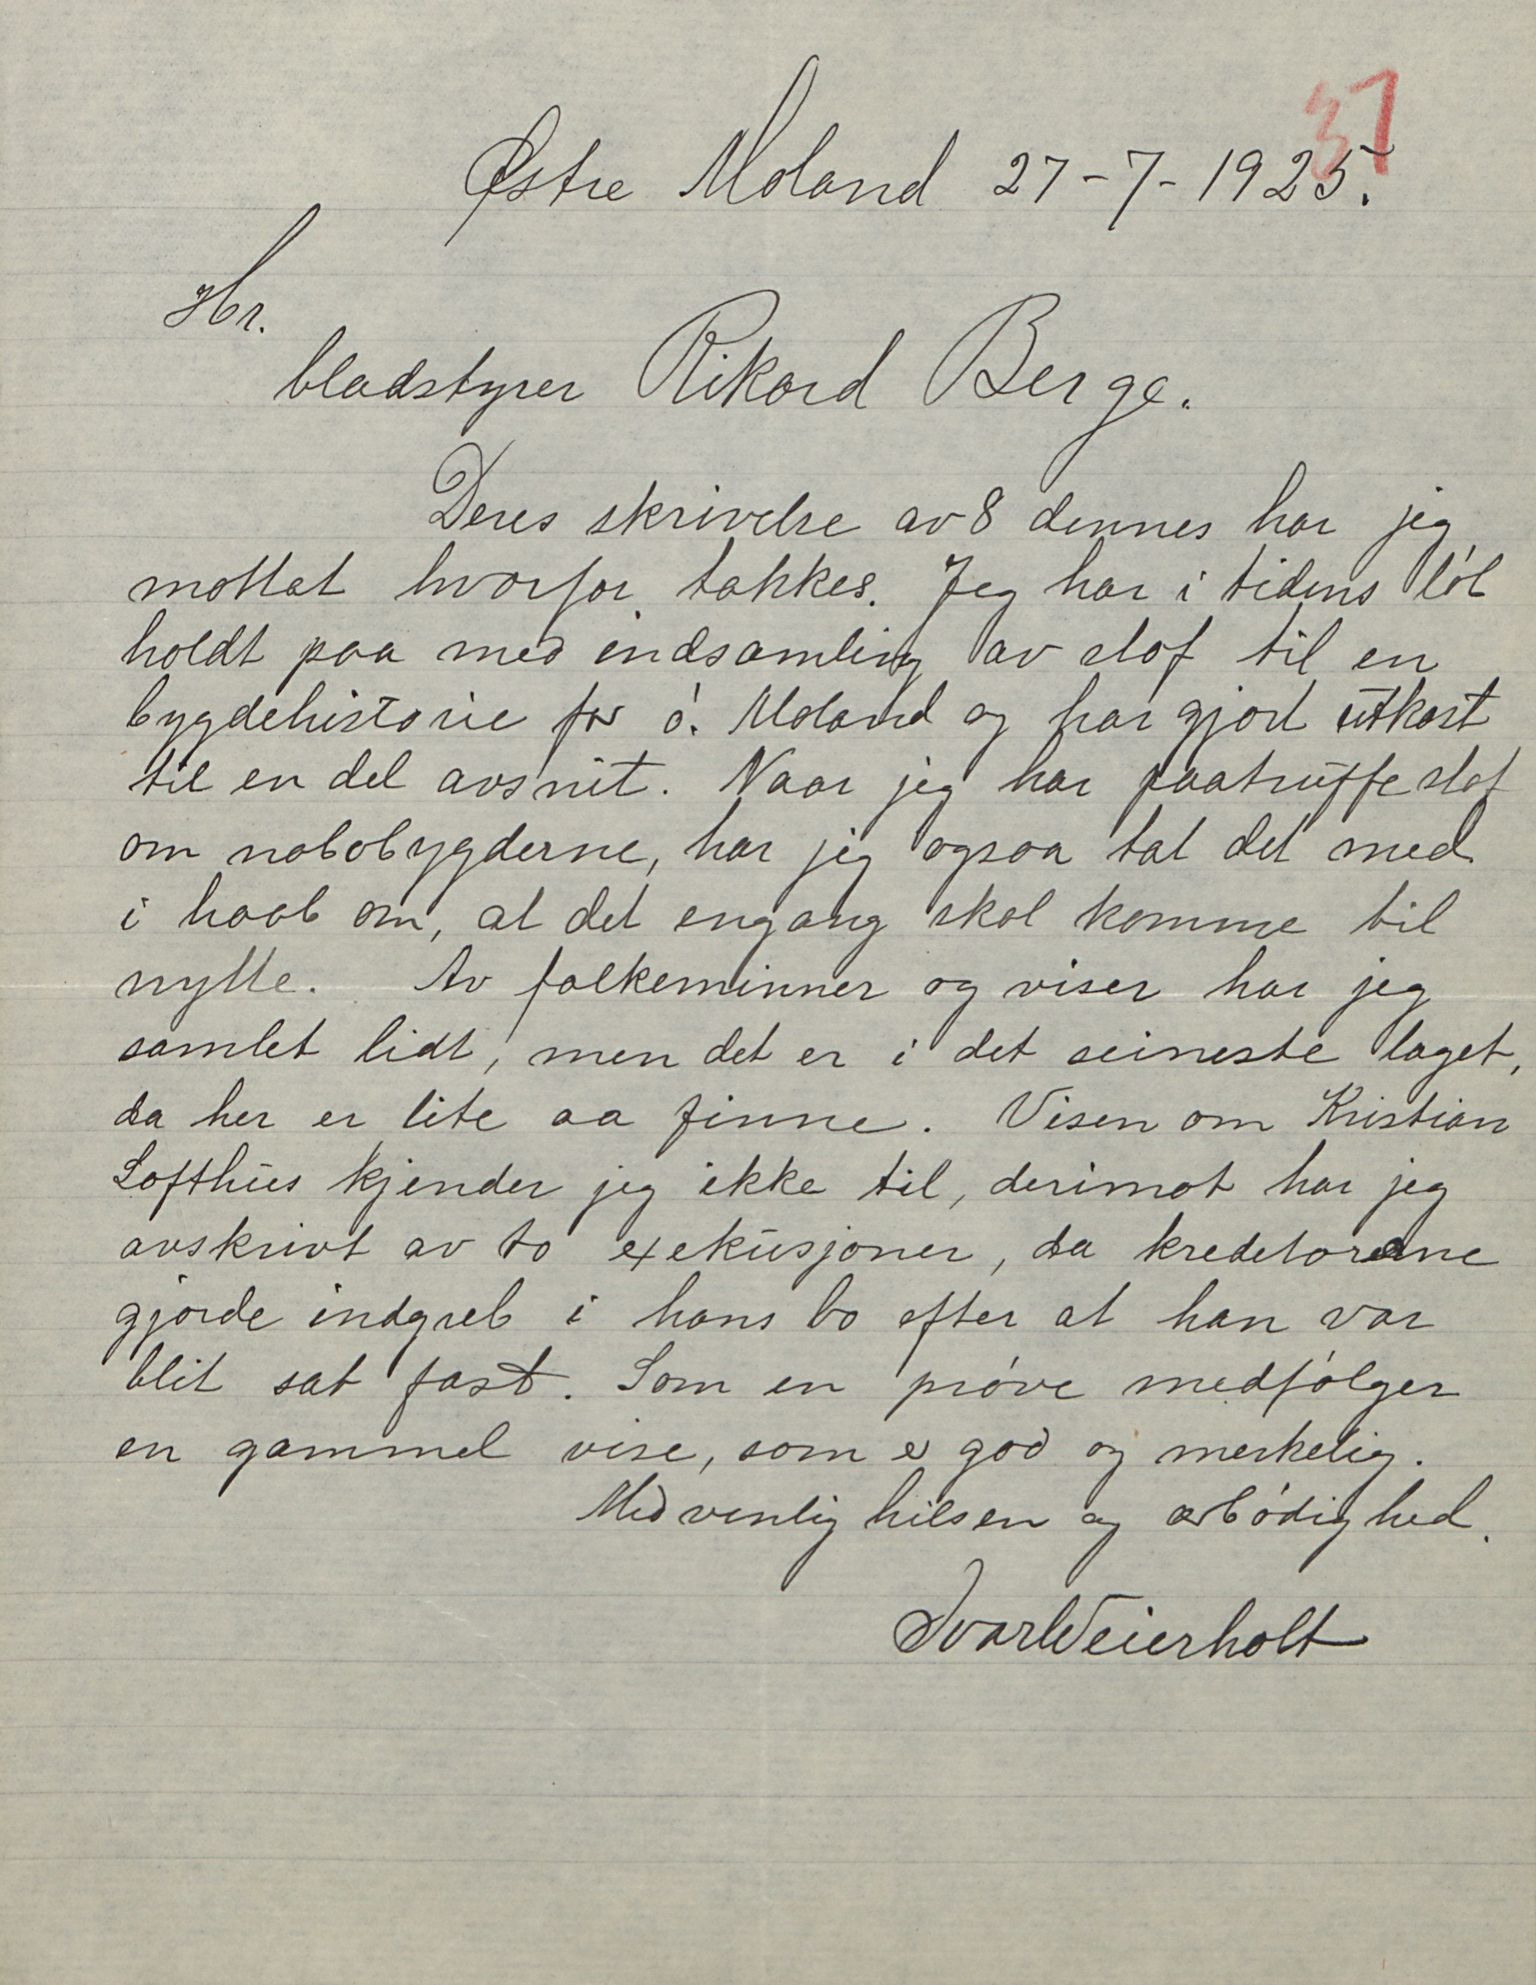 37
Østre Moland 27-7-1925.
Hr.
bladstyrer Rikard Berge.
Deres skrivelse av 8 dennes har jeg
mottat hvorfor takkes. Jeg har i tidens løb
holdt paa med indsamling av stof til en
bygdehistorie for ø. Moland og har gjort utkast
til en del avsnit. Naar jeg har paatruffe stof
om nabobygderne, har jeg ogsaa tat det med
i haab om, at det engang skal komme til
nytte. Av folkeminner og viser har jeg
samlet lidt, men det er i det seineste laget,
da her er lite aa finne. Visen om Kristian
Lofthus kjender jeg ikke til, derimot har jeg
avskrivt av to exekusjoner, da kreditorerne
gjorde indgreb i hans bo efter at han var
blit sat fast. Som en prøve medfølger
en gammel vise, som er god og merkelig.
Med venlig hilsen og ærbødighed.
Ivar Weierholt